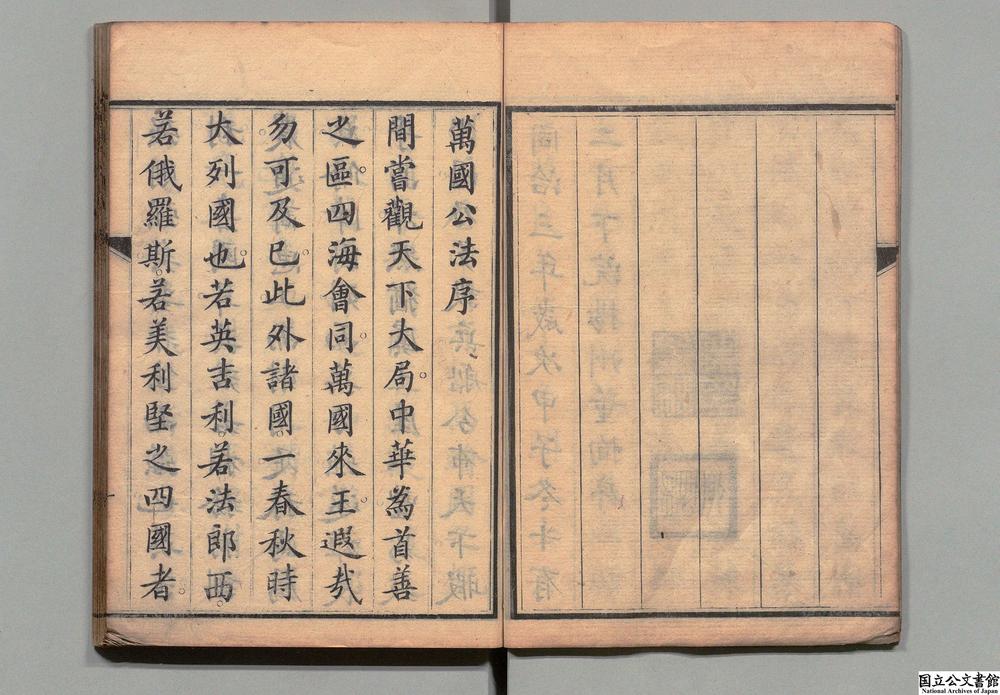 萬國公法序
間嘗觀天下大局。中華為首善
之區。四海會同。萬國來王。遐哉
勿可及已。此外諸國。一春秋時
大列國也。若英吉利。若法郎西。
若俄羅斯。若美利堅之四國者。
国立公文書館
National Archives of Japan